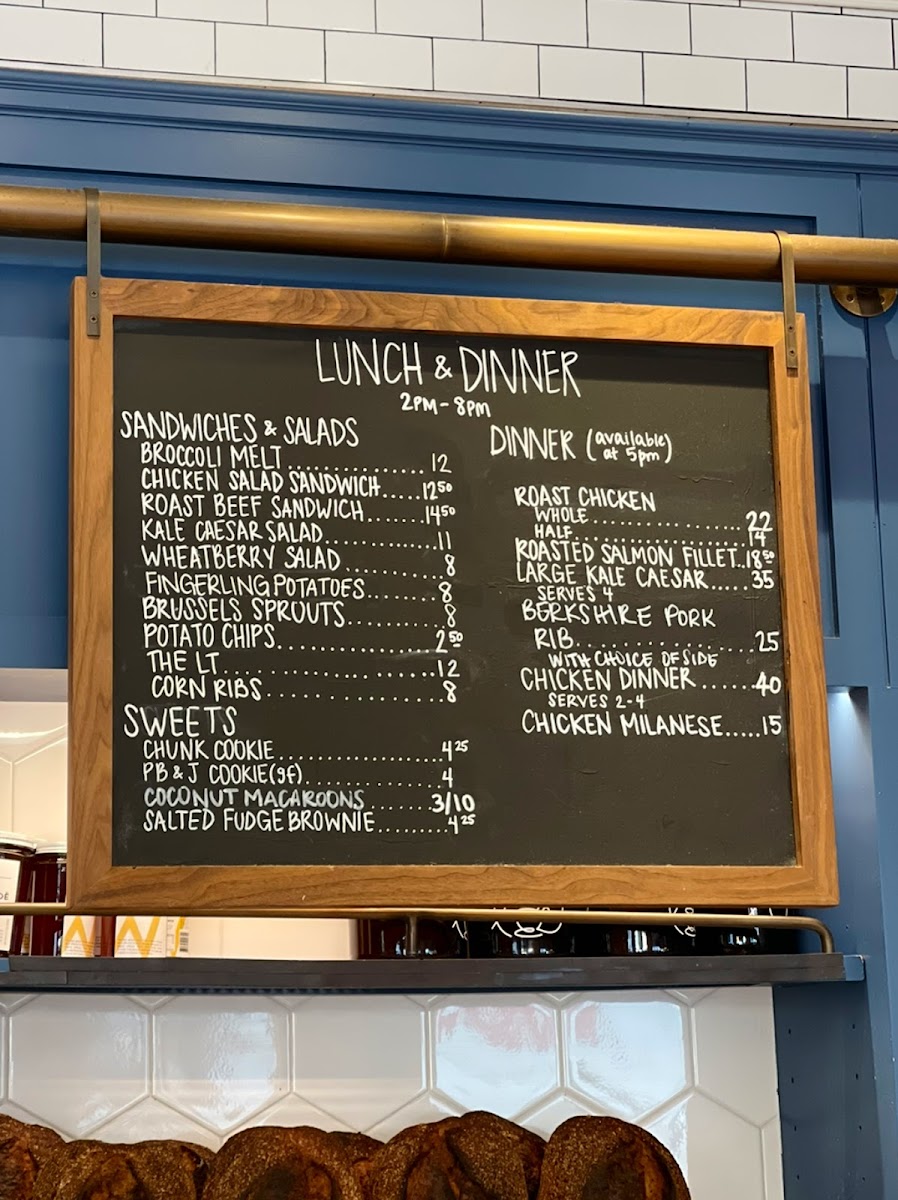 LUNCH & DINNER
2PM - 8PM
SANDWICHES & SALADS
BROCCOLI MELT.............12
CHICKEN SALAD SANDWICH.....12 50
ROAST BEEF SANDWICH.......14 50
KALE CAESAR SALAD............11
WHEATBERRY SALAD..........8
FINGERLING POTATOES.......8
BRUSSELS SPROUTS..........8
POTATO CHIPS.................2 50
THE LT.....................12
CORN RIBS.................8
SWEETS
CHUNK COOKIE................4 25
PB & J COOKIE (gf).............4
COCONUT MACAROONS........3/10
SALTED FUDGE BROWNIE.........4 25
DINNER (available
at 5pm)
ROAST CHICKEN
WHOLE.................22
HALF..................14
ROASTED SALMON FILLET..18 50
LARGE KALE CAESAR.....35
SERVES 4
BERKSHIRE PORK
RIB.................25
WITH CHOICE OF SIDE
CHICKEN DINNER......40
SERVES 2-4
CHICKEN MILANESE.....15